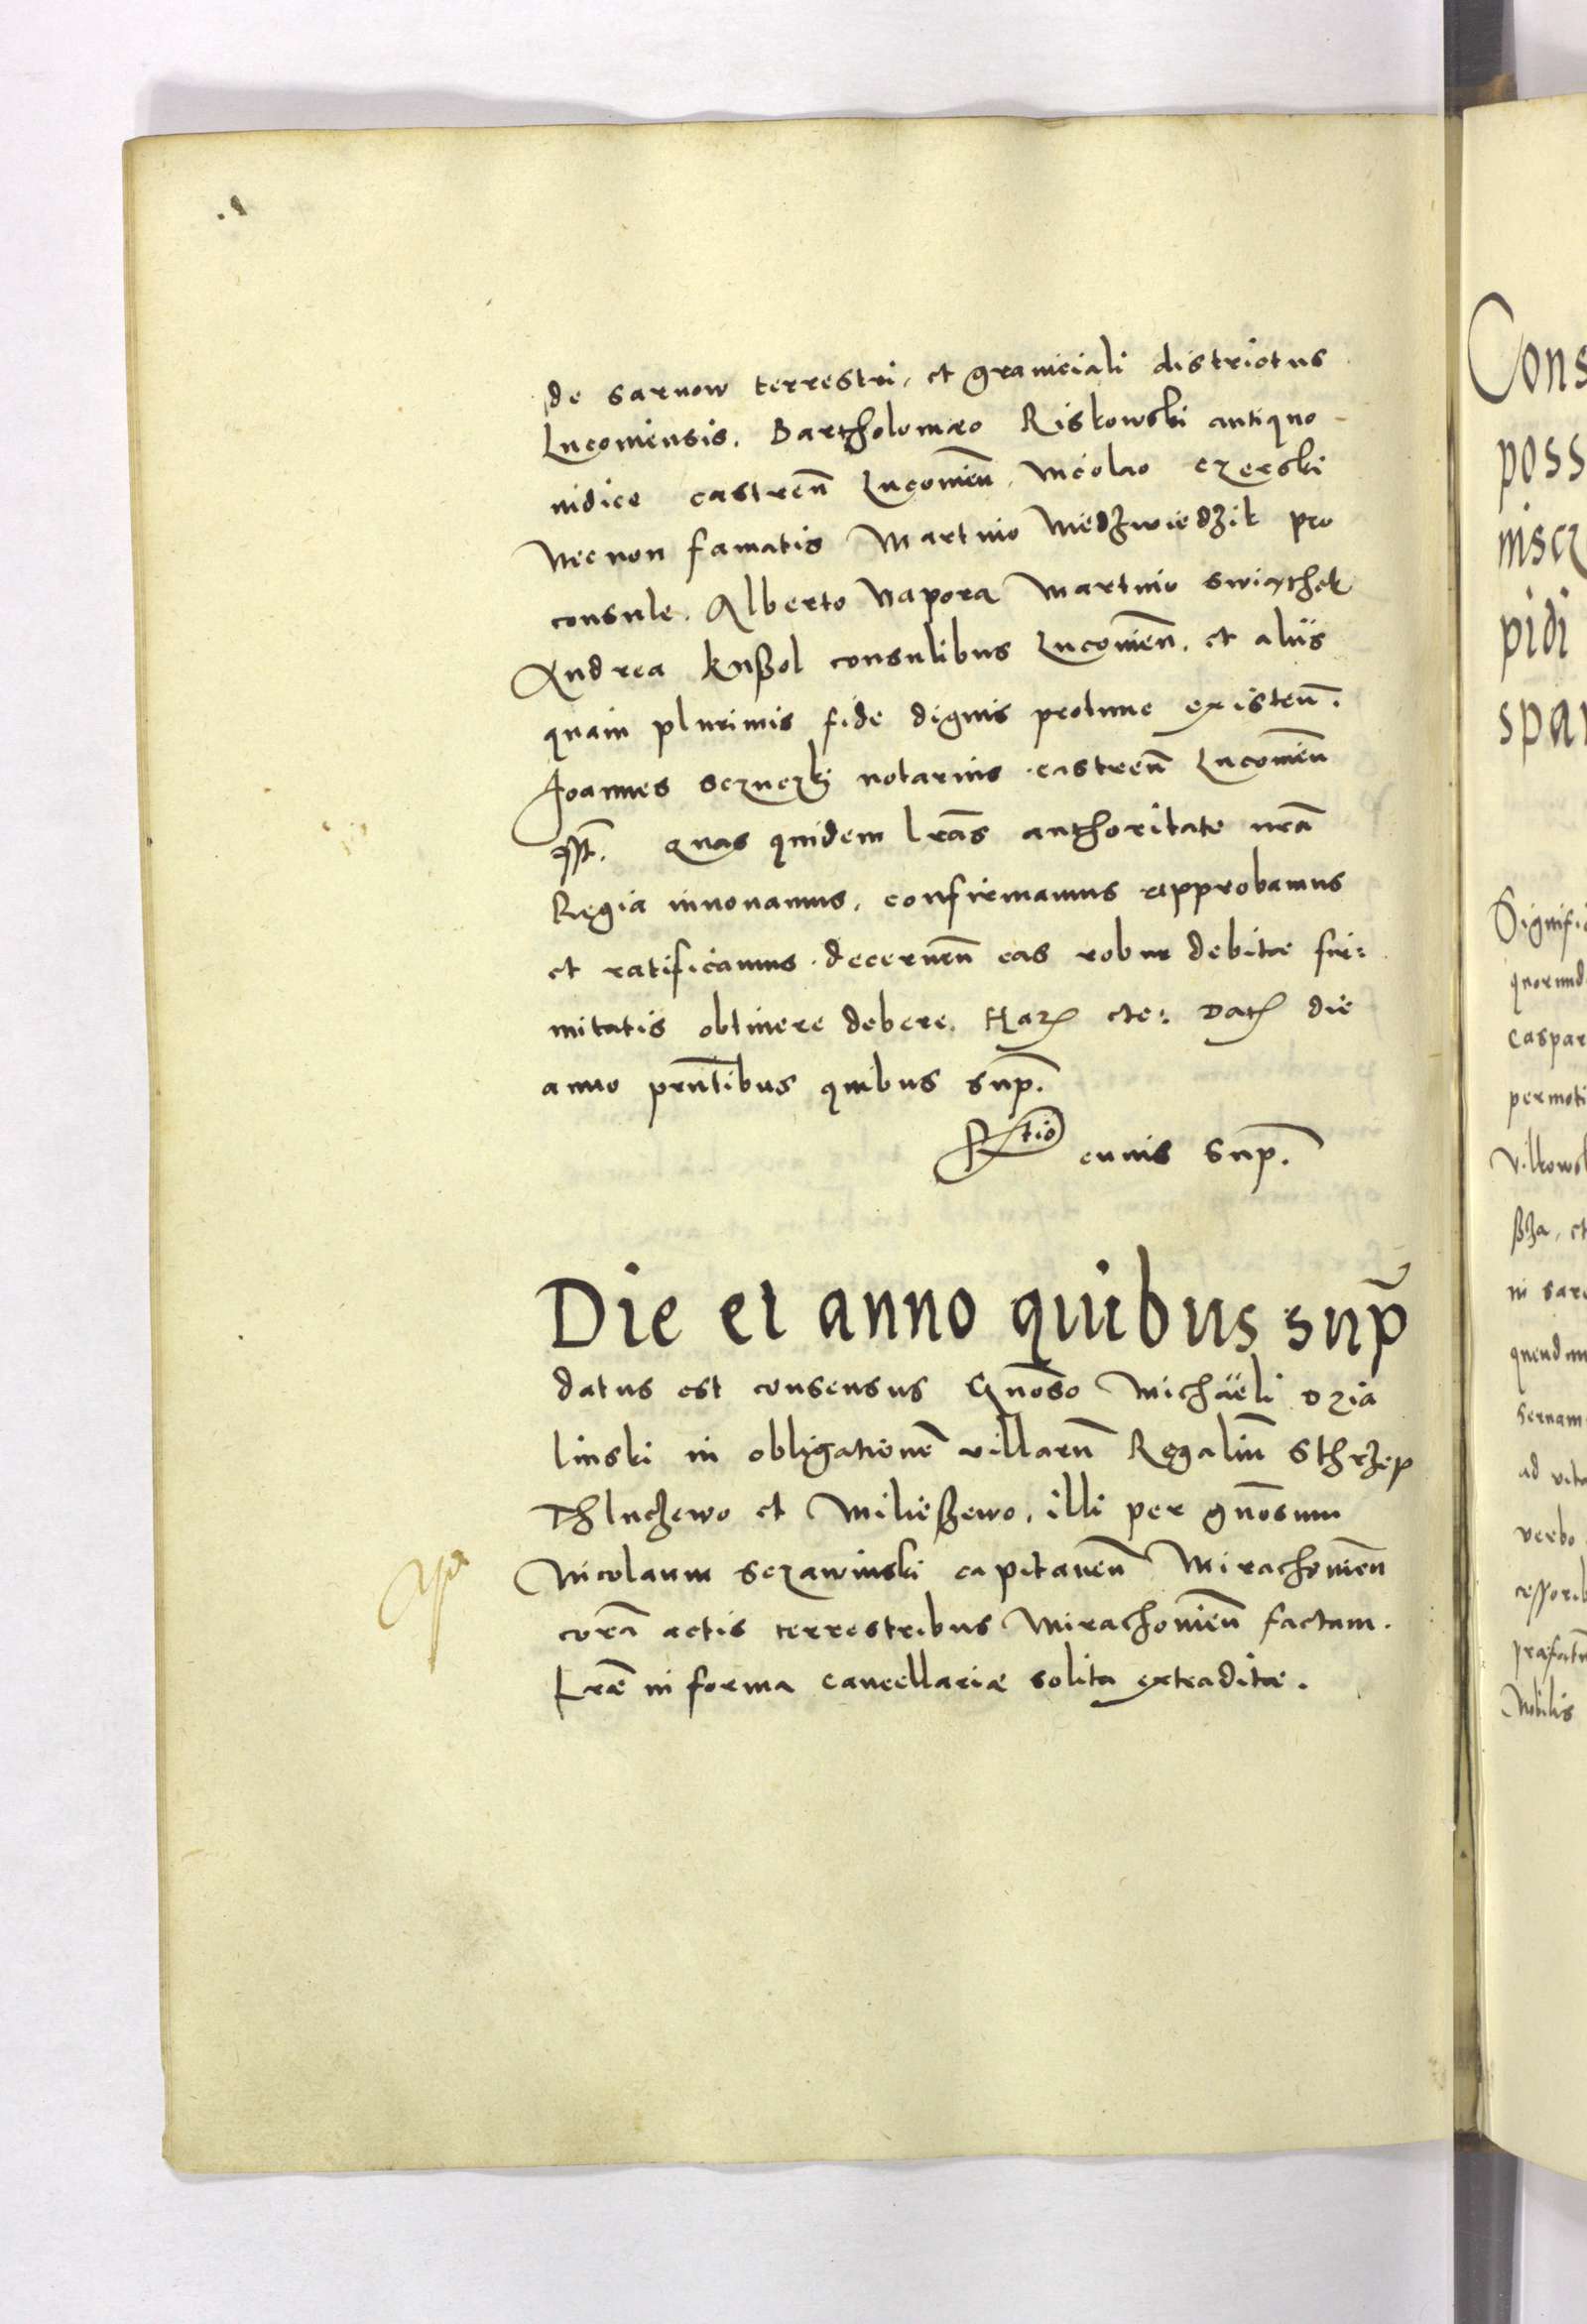 de Sarnow terrestri, et graniciali districtus
Lucoviensis. Bartholomæo Riskowski antiquo
iudice castreñ Lucovieñ, Nicolao Czerski
Necnon famatis Martino Niedzwiedzik pro
consule. Alberto Napora Martino Swiąthek
Andrea Kußol consulibus Lucovieñ. et aliis
quam plurimis fide dignis protunc existeñ.
Joannes notarius castreñ Lucovieñ
Quas quidem lrãs authoritate nrã
Regia innovamus, confirmamus approbamus
et ratificamus. decerneñ eas robur debitæ fir:
mitatis obtinere debere. Harꝫ etc: Datꝫ die
anno prñtibus quibus sup.
Rtio cuius sup.
Die et anno quibus sup
datus est consensus Gñoso Michaëli Dzia
linski in obligationẽ villarũ Regaliũ Sthrzep
Thluczewo et Miließewo, illi per gñosum
Nicolaum Sczawinski capitaneũ Mirachovieñ
corã actis terrestribus Mirachovieñ factam.
Lræ in forma cancellariæ solita extraditæ.
Cons
poss
niscz
pidi
spar
Signific
quorund
Caspar
permoti
Vilkowsk
ßza, et
in sar
quendam
Sernam
ad vit
verbo
cessorib
præfatũ
Nobilis